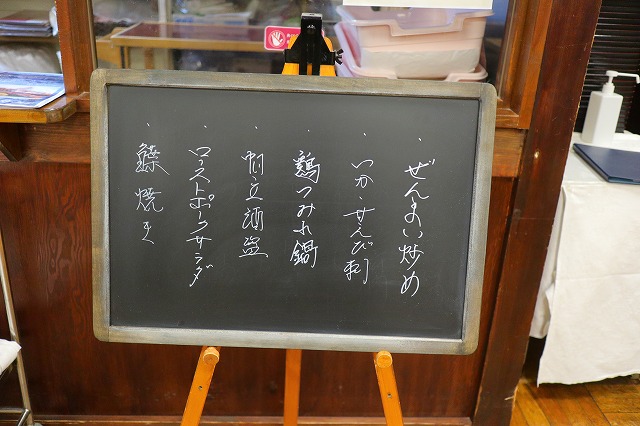 ・ぜんまい炒め
・いか・甘えび刺
・鶏つみれ鍋
・帆立酒盗
・ローストポークサラダ
・鰈焼き